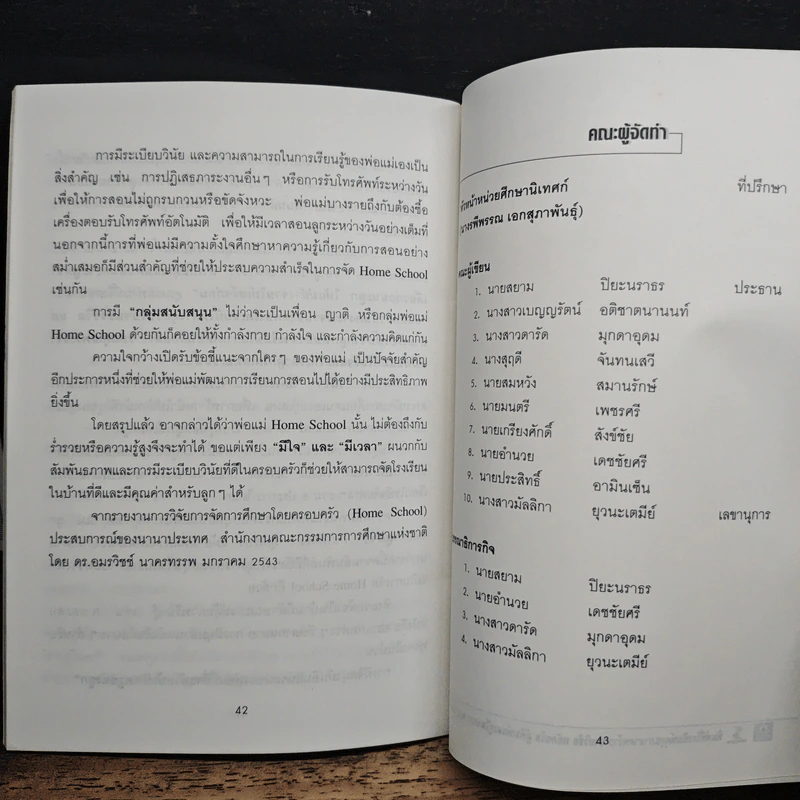 การมีระเบียบวินัย และความสามารถในการเรียนรู้ของพ่อแม่เองเป็น
สิ่งสำคัญ เช่น การปฏิเสธภาระงานอื่นๆ หรือการรับโทรศัพท์ระหว่างวัน
เพื่อให้การสอนไม่ถูกรบกวนหรือขัดจังหวะ พ่อแม่บางรายถึงกับต้องซื้อ
เครื่องตอบรับโทรศัพท์อัตโนมัติ เพื่อให้มีเวลาสอนลูกระหว่างวันอย่างเต็มที่
นอกจากนี้การที่พ่อแม่มีความตั้งใจศึกษาหาความรู้เกี่ยวกับการสอนอย่าง
สม่ำเสมอก็มีส่วนสำคัญที่ช่วยให้ประสบความสำเร็จในการจัด Home School
เช่นกัน
การมี “กลุ่มสนับสนุน” ไม่ว่าจะเป็นเพื่อน ญาติ หรือกลุ่มพ่อแม่
Home School ด้วยกันก็คอยให้ทั้งกำลังกาย กำลังใจ และกำลังความคิดแก่กัน
ความใจกว้างเปิดรับข้อชี้แนะจากใครๆ ของพ่อแม่ เป็นปัจจัยสำคัญ
อีกประการหนึ่งที่ช่วยให้พ่อแม่พัฒนาการเรียนการสอนไปได้อย่างมีประสิทธิภาพ
ยิ่งขึ้น
โดยสรุปแล้ว อาจกล่าวได้ว่าพ่อแม่ Home School นั้น ไม่ต้องถึงกับ
ร่ำรวยหรือความรู้สูงจึงจะทำได้ ขอแต่เพียง “มีใจ” และ “มีเวลา” ผนวกกับ
สัมพันธภาพและการมีระเบียบวินัยที่ดีในครอบครัวก็ช่วยให้สามารถจัดโรงเรียน
ในบ้านที่ดีและมีคุณค่าสำหรับลูกๆ ได้
จากรายงานการวิจัยการจัดการศึกษาโดยครอบครัว (Home School)
ประสบการณ์ของนานาประเทศ สำนักงานคณะกรรมการการศึกษาแห่งชาติ
โดย ดร.อมรวิชช์ นาครทรรพ มกราคม 2543
42
คณะผู้จัดทำ
หัวหน้าหน่วยศึกษานิเทศก์ ที่ปรึกษา
(นางรพีพรรณ เอกสุภาพันธุ์)
คณะผู้เขียน
1. นายสยาม ปิยะนราธร ประธาน
2. นางสาวเบญญรัตน์ อติชาตนานนท์
3. นางสาวดารัด มุกดาอุดม
4. นางสุฤดี จันทนเสวี
5. นายสมหวัง สมานรักษ์
6. นายมนตรี เพชรศรี
7. นายเกรียงศักดิ์ สังข์ชัย
8. นายอำนวย เดชชัยศรี
9. นายประสิทธิ์ อามินเซ็น
10. นางสาวมัลลิกา ยุวนะเตมีย์ เลขานุการ
บรรณาธิการกิจ
1. นายสยาม ปิยะนราธร
2. นายอำนวย เดชชัยศรี
3. นางสาวดารัด มุกดาอุดม
4. นางสาวมัลลิกา ยุวนะเตมีย์
43